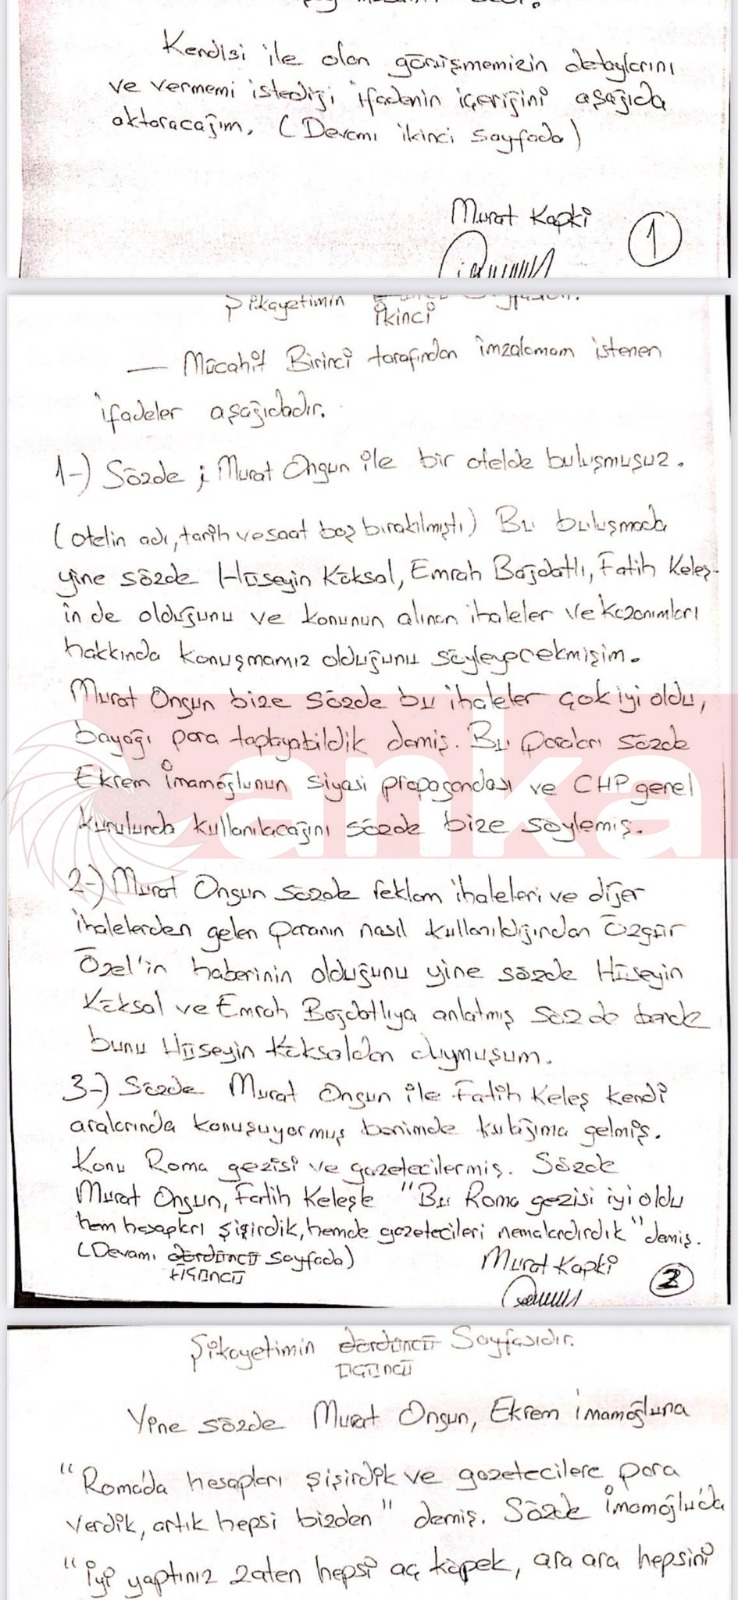 Kendisi ile olan görüşmemizin detaylarını
ve vermemi istediği ifadenin içeriğini aşağıda
aktaracağım. (Devamı ikinci sayfada)
Murat Kapki
1
Şikayetimin
ikinci
— Mücahit Birinci tarafından imzalamam istenen
ifadeler aşağıdadır.
1-) Sözde ; Murat Ongun ile bir otelde buluşmuşuz.
(otelin adı, tarih ve saat boş bırakılmıştı) Bu buluşmada
yine sözde Hüseyin Köksal, Emrah Bağdatlı, Fatih Keleş-
in de olduğunu ve konunun alınan ihaleler ve kazanımları
hakkında konuşmamız olduğunu söyleyecekmişim.
Murat Ongun bize sözde bu ihaleler çok iyi oldu,
bayağı para toplayabildik demiş. Bu paraları sözde
Ekrem İmamoğlunun siyasi propagandası ve CHP genel
kurulunda kullanılacağını sözde bize söylemiş.
anka
2-) Murat Ongun sözde reklam ihaleleri ve diğer
ihalelerden gelen paranın nasıl kullanıldığından Özgür
Özel'in haberinin olduğunu yine sözde Hüseyin
Köksal ve Emrah Bağdatlıya anlatmış sözde bende
bunu Hüseyin Köksaldan duymuşum.
3-) Sözde Murat Ongun ile Fatih Keleş kendi
aralarında konuşuyormuş benimde kulağıma gelmiş.
Konu Roma gezisi ve gazetecilermiş. Sözde
Murat Ongun, Fatih Keleşle "Bu Roma gezisi iyi oldu
hem hesapları şişirdik, hemde gazetecileri nemalandırdık" demiş.
(Devamı dördüncü sayfada)
üçüncü
Murat Kapki
2
Şikayetimin dördüncü Sayfasıdır.
üçüncü
Yine sözde Murat Ongun, Ekrem İmamoğluna
"Roma'da hesapları şişirdik ve gazetecilere para
verdik, artık hepsi bizden" demiş. Sözde İmamoğlu'da
"iyi yaptınız zaten hepsi aç köpek, ara ara hepsini